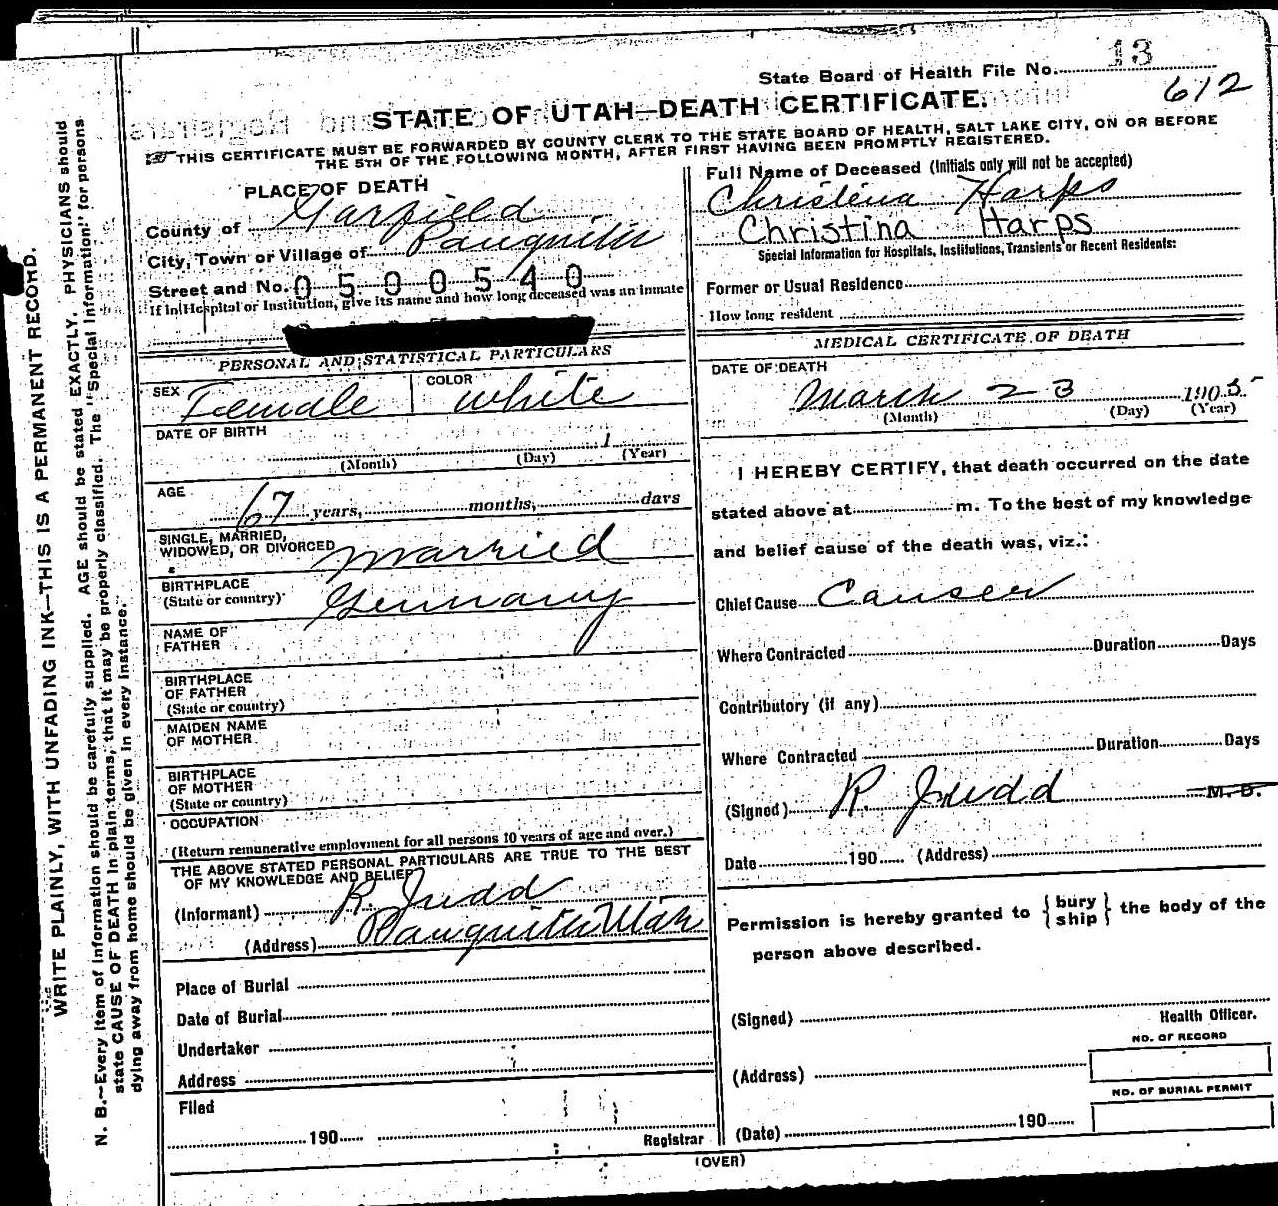 State Board of Health File No. 13
612
STATE OF UTAH—DEATH CERTIFICATE.
THIS CERTIFICATE MUST BE FORWARDED BY COUNTY CLERK TO THE STATE BOARD OF HEALTH, SALT LAKE CITY, ON OR BEFORE
THE 5TH OF THE FOLLOWING MONTH, AFTER FIRST HAVING BEEN PROMPTLY REGISTERED.
PLACE OF DEATH
County of Garfield
City, Town or Village of Panguitch
Street and No. 0500540
If in Hospital or Institution, give its name and how long deceased was an inmate
PERSONAL AND STATISTICAL PARTICULARS
SEX Female COLOR White
DATE OF BIRTH 1
(Month) (Day) (Year)
AGE 67 years, months, days
SINGLE, MARRIED,
WIDOWED, OR DIVORCED married
BIRTHPLACE
(State or country) Germany
NAME OF
FATHER
BIRTHPLACE
OF FATHER
(State or country)
MAIDEN NAME
OF MOTHER
BIRTHPLACE
OF MOTHER
(State or country)
OCCUPATION
(Return remunerative employment for all persons 10 years of age and over.)
THE ABOVE STATED PERSONAL PARTICULARS ARE TRUE TO THE BEST
OF MY KNOWLEDGE AND BELIEF
(Informant) R. Judd
(Address) Panguitch Utah
Place of Burial
Date of Burial
Undertaker
Address
Filed
190 Registrar
Full Name of Deceased (Initials only will not be accepted)
Christina Harps
Christina Harps
Special Information for Hospitals, Institutions, Transients or Recent Residents:
Former or Usual Residence
How long resident
MEDICAL CERTIFICATE OF DEATH
DATE OF DEATH
March 23 1905
(Month) (Day) (Year)
I HEREBY CERTIFY, that death occurred on the date
stated above at m. To the best of my knowledge
and belief cause of the death was, viz.:
Chief Cause Causer
Where Contracted Duration Days
Contributory (if any)
Where Contracted Duration Days
(Signed) R. Judd M. D.
Date 190 (Address)
Permission is hereby granted to {bury
ship} the body of the
person above described.
(Signed)
Health Officer.
NO. OF RECORD
(Address)
NO. OF BURIAL PERMIT
(Date) 190
(OVER)
WRITE PLAINLY, WITH UNFADING INK—THIS IS A PERMANENT RECORD.
N. B.—Every item of information should be carefully supplied. AGE should be stated EXACTLY. PHYSICIANS should
state CAUSE OF DEATH in plain terms, that it may be properly classified. The "Special Information" for persons
dying away from home should be given in every instance.